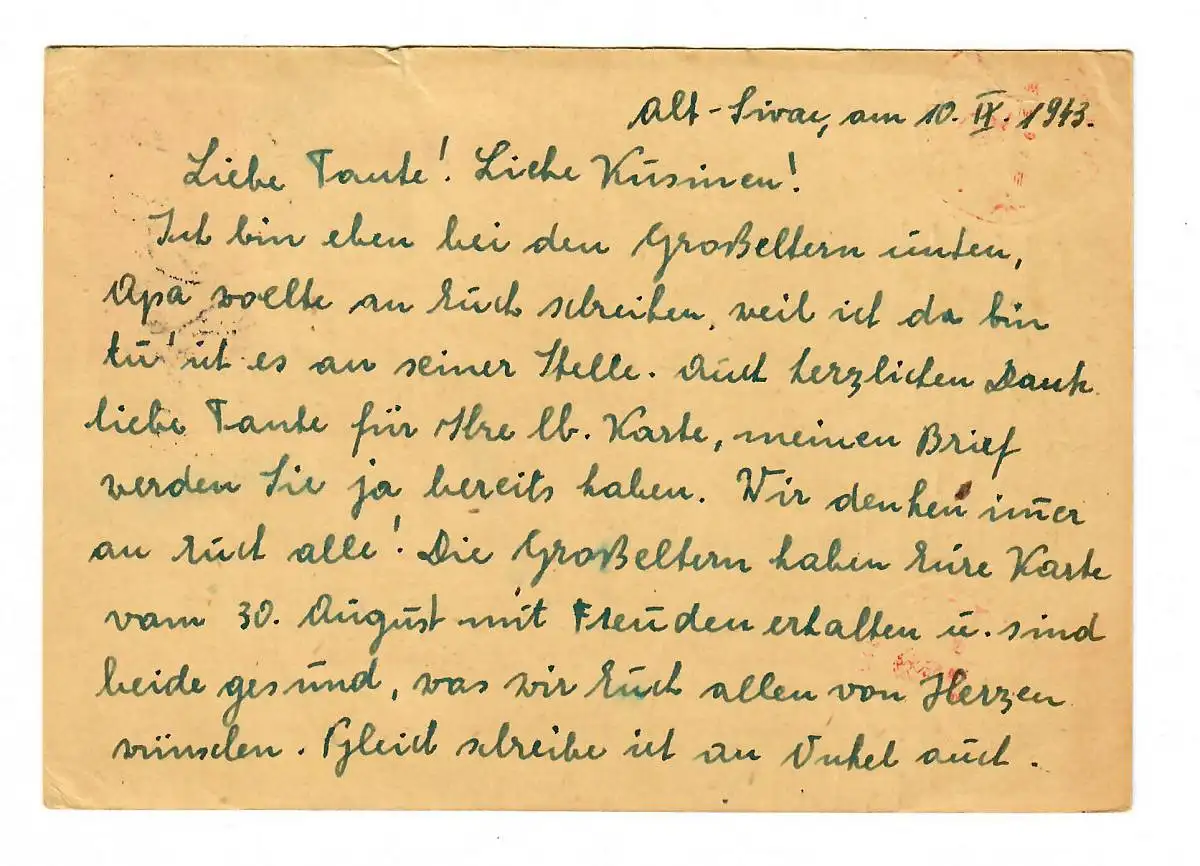 Alt-Sivac, am 10. IX. 1943.
Liebe Tante! Liebe Kusinen!
Ich bin eben bei den Großeltern unten,
Apa wollte an Euch schreiben, weil ich da bin
tu' ich es an seiner Stelle. Auch herzlichen Dank
liebe Tante für Ihre lb. Karte, meinen Brief
werden Sie ja bereits haben. Wir denken im̅er
an Euch alle! Die Großeltern haben Eure Karte
vom 30. August mit Freuden erhalten u. sind
beide gesund, was wir Euch allen von Herzen
wünschen. Gleich schreibe ich an Onkel auch.